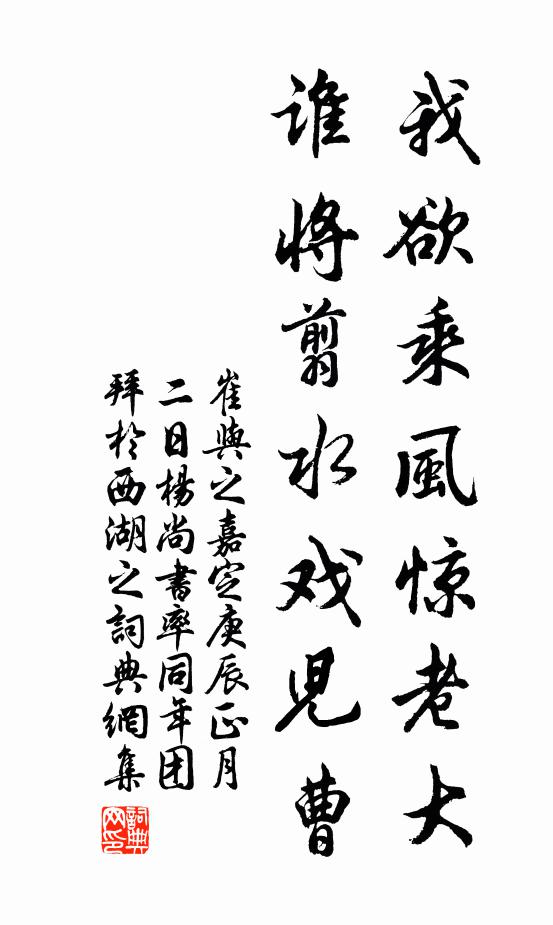 我欲乘風惊老大
谁将翦水戏兒曹
崔與之嘉定庚辰正月
二日楊尚書率同年団
拜於西湖之詞典網集
詞典
网印